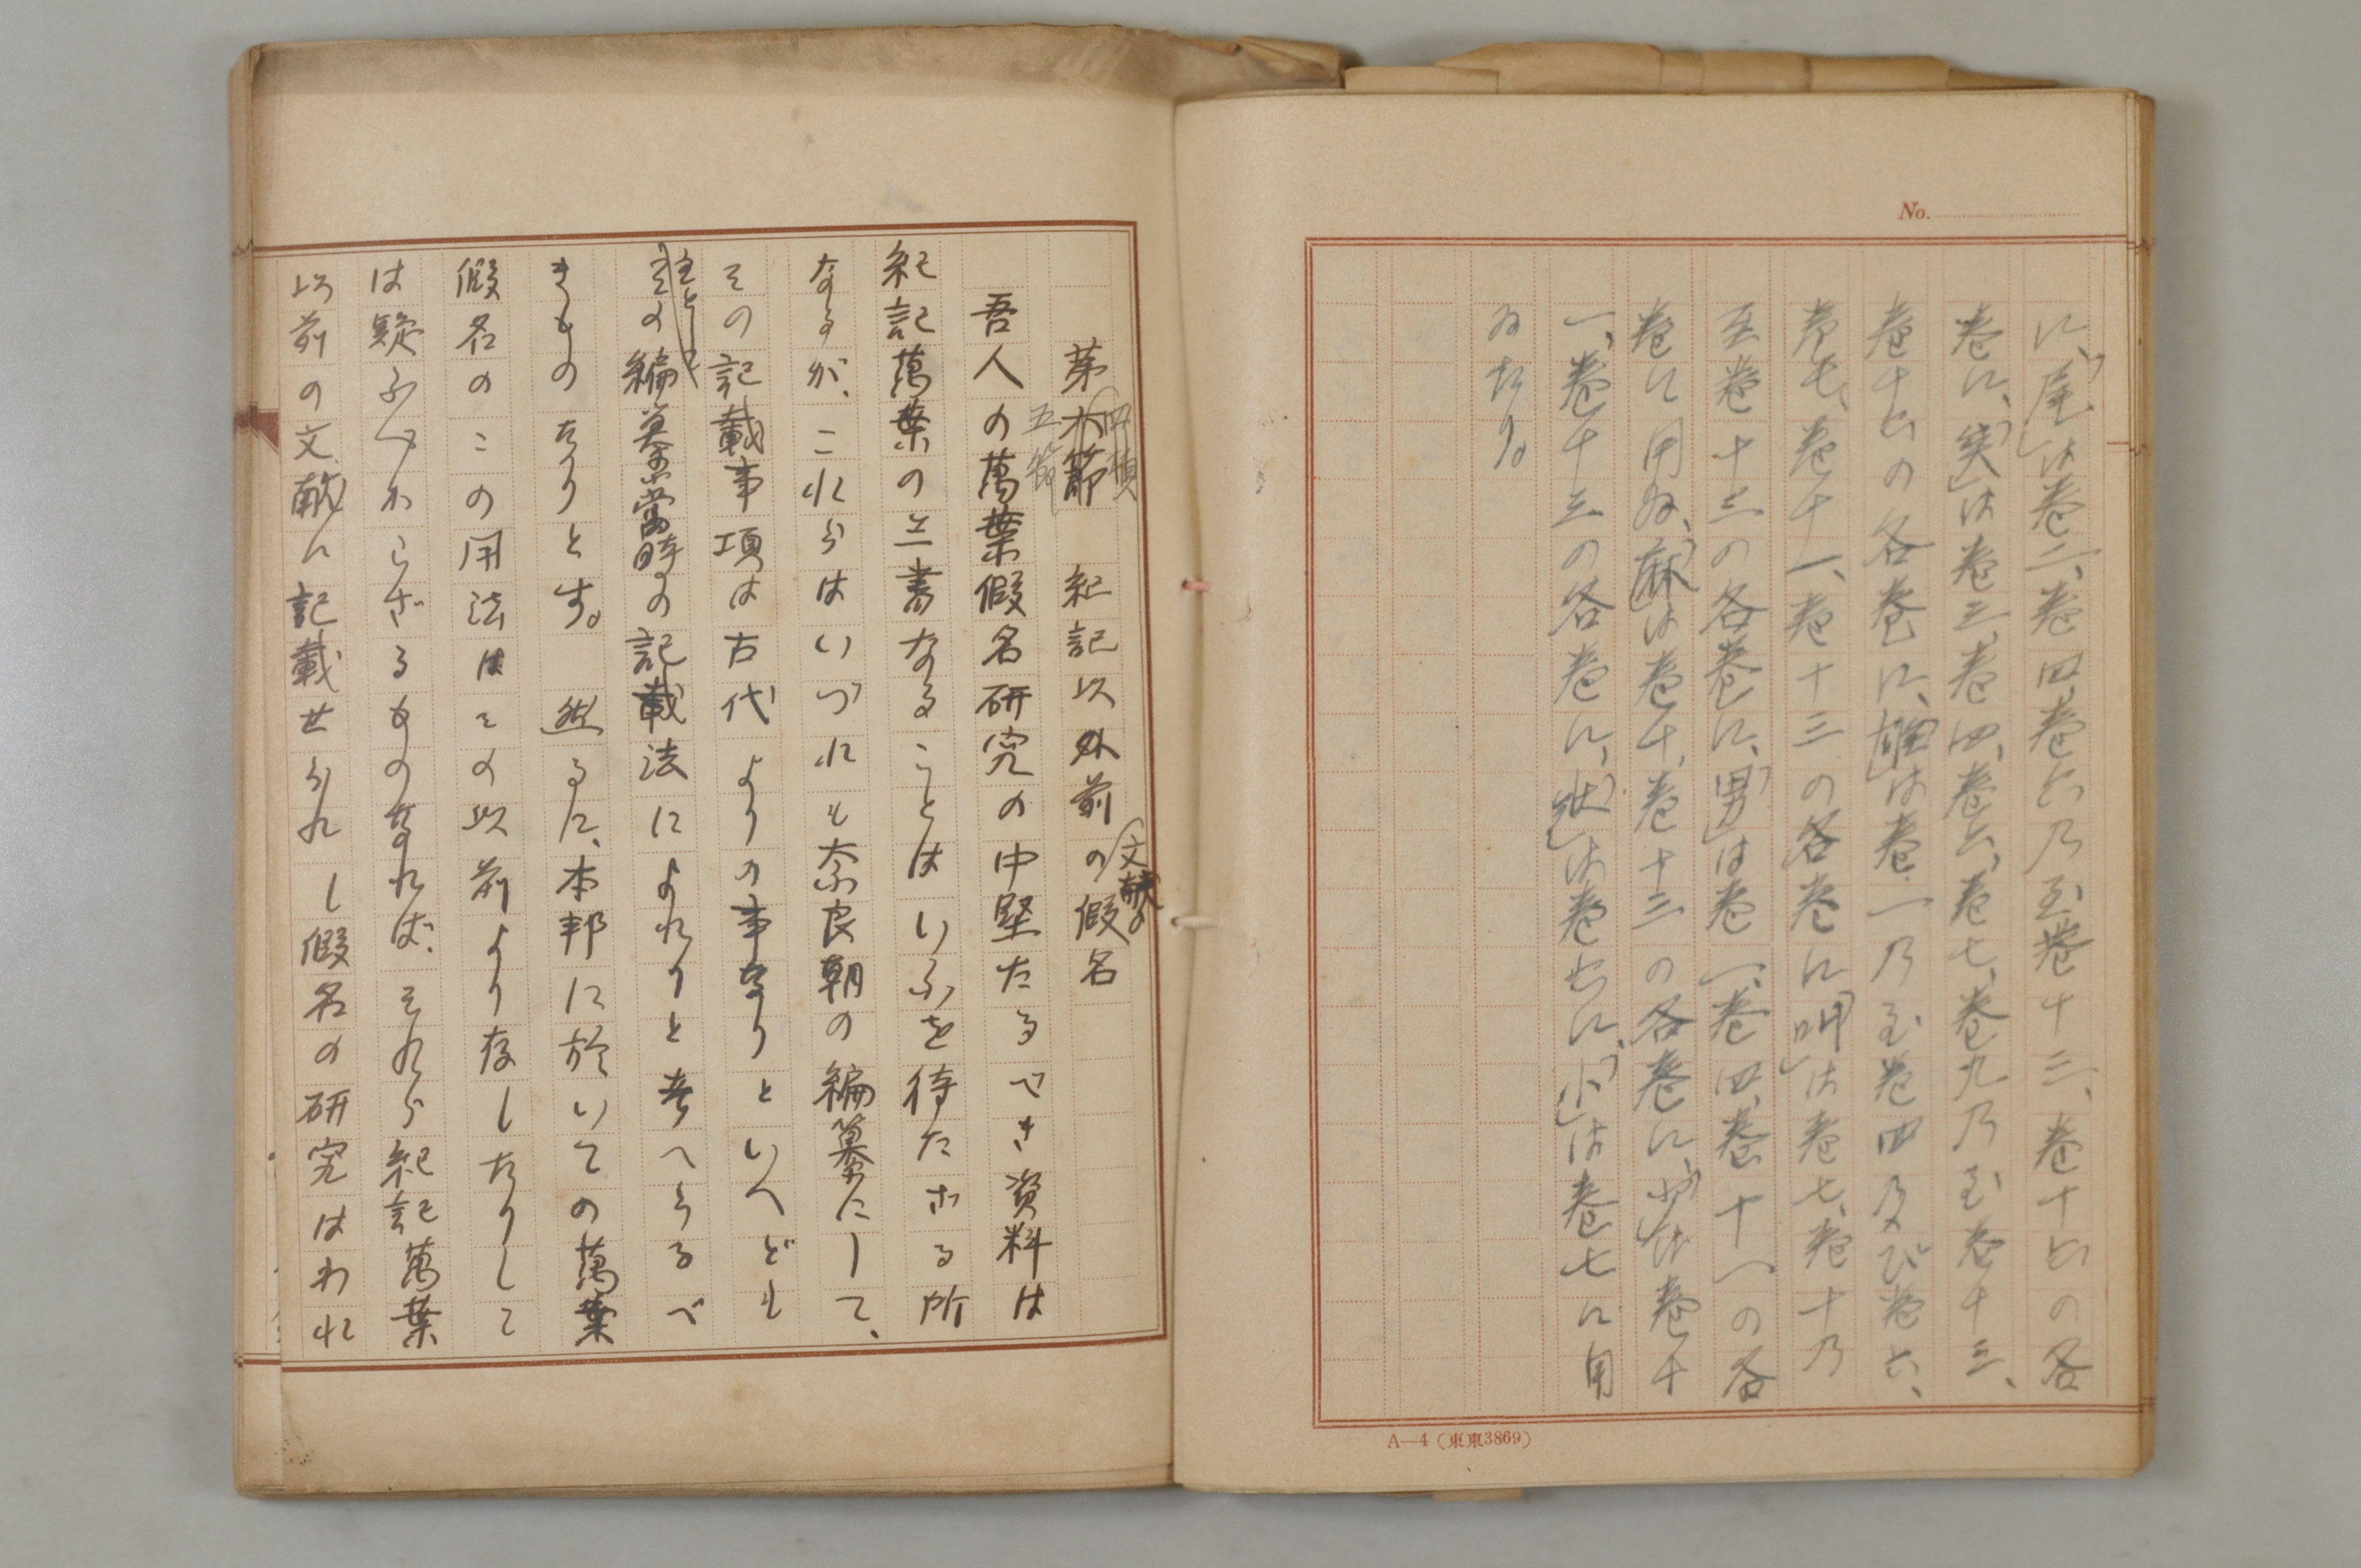 No.
に、「尾」は巻二、巻四、巻六乃至巻十三、巻十六の各
巻に、「矣」は巻三、巻四、巻六、巻七、巻九乃至巻十三、
巻十六の各巻に、「雄」は巻一乃至巻四及び巻六、
巻七、巻十一、巻十三の各巻に「呼」は巻七、巻十乃
至巻十三の各巻に、「男」は巻一、巻四、巻十一の各
巻に用ゐ、「麻」は巻十、巻十三の各巻に、「少」は巻十
一、巻十三の各巻に、「状」は巻七に、「小」は巻七に用
ゐたり。
A—4(東東3869)
第六節 紀記以外前の假名
四項
五節
文献の
吾人の萬葉假名研究の中堅たるべき資料は
紀記萬葉の三書なることはいふを待たざる所
なるが、これらはいづれも奈良朝の編纂にして、
その記載事項は古代よりの事なりといへども
主として
その編纂當時の記載法によれりと考へらるべ
きものなりとす。 然るに、本邦に於いての萬葉
假名のこの用法はその以前より存したりして
は疑ふべからざるものなれば、それら紀記萬葉
以前の文献に記載せられし假名の研究はわれ